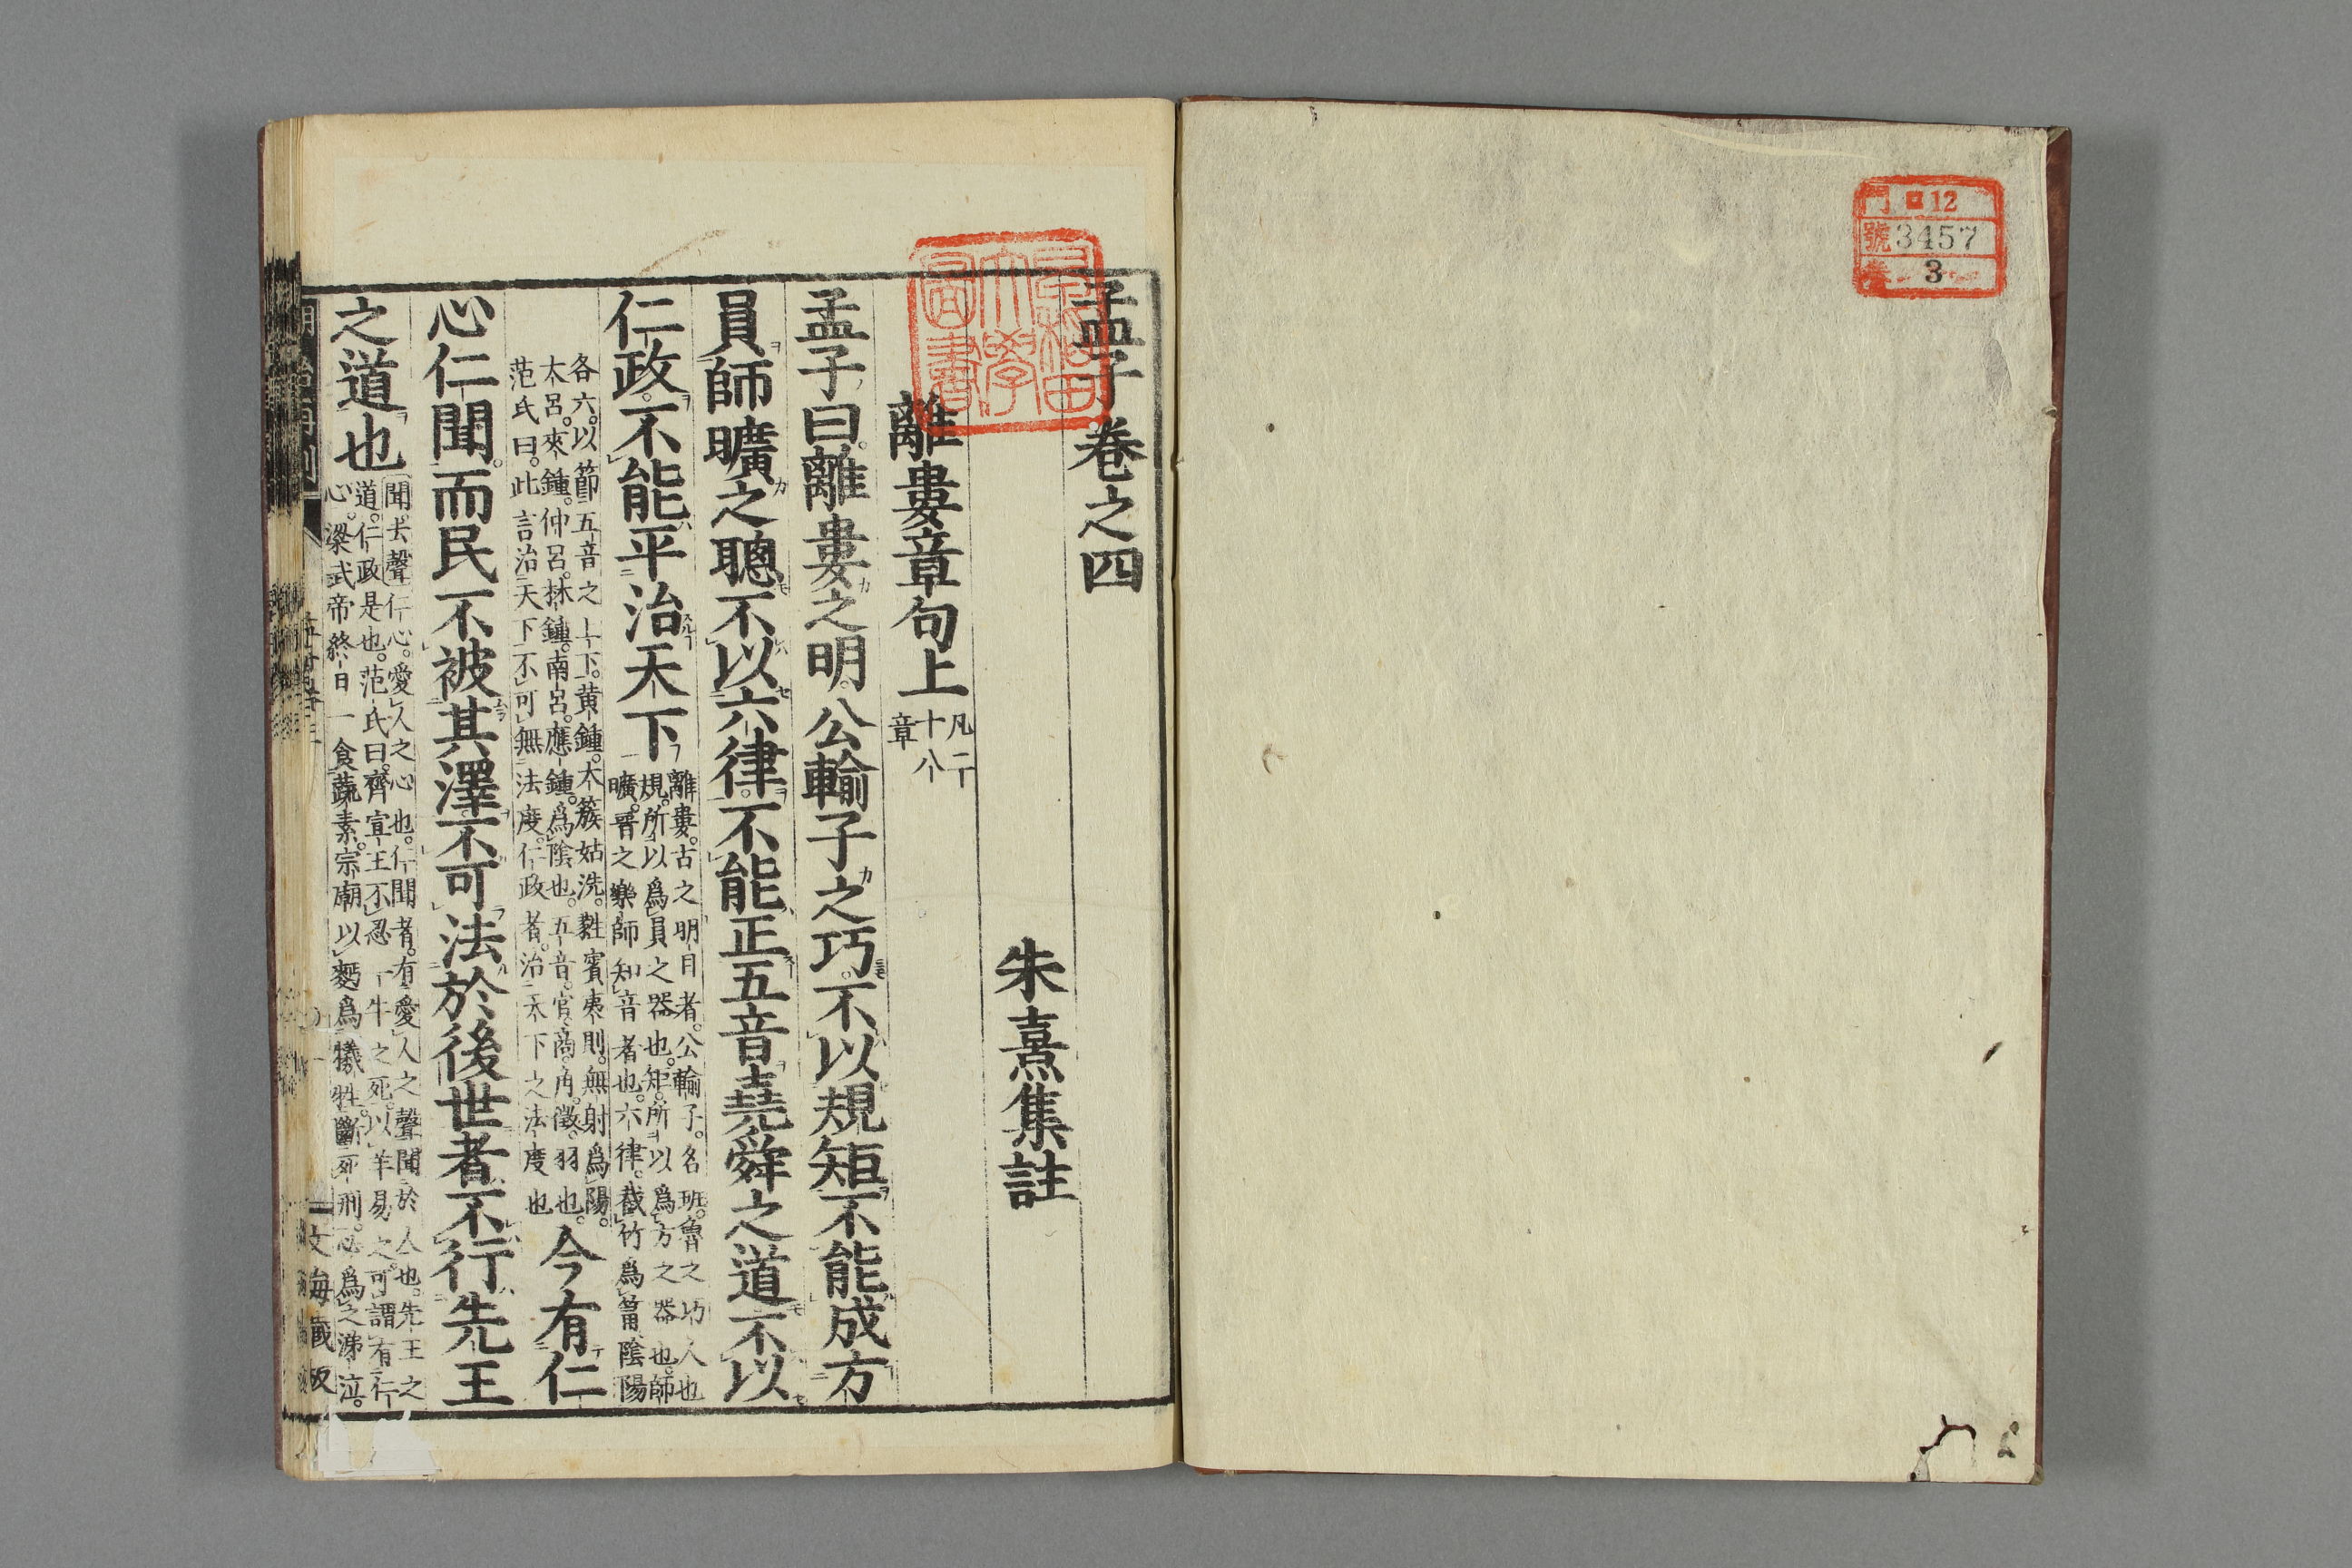 門 ロ 12
號 3457
卷 3
早稲田
大學
圖書
孟子卷之四
朱熹集註
離婁章句上 凡二十八章
孟子曰。離婁之明。公輸子之巧。不以規矩不能成方
員師曠之聰不以六律。不能正五音堯舜之道不以
仁政。不能平治天下
離婁。古之明目者。公輸子。名班。魯之巧人也
規。所以爲員之器也。矩。所以爲方之器也。師
曠。晉之樂師知音者也。六律。截竹爲筩。陰陽
各六。以節五音之上下。黃鍾。太簇姑洗。蕤賓夷則。無射爲陽。
大呂。夾鍾。仲呂。林鍾。南呂。應鍾。爲陰也。五音。宮。商。角。徵。羽也。
范氏曰。此言治天下不可無法度。仁政者。治天下之法度也
今有仁
心仁聞。而民不被其澤不可法於後世者不行先王
之道也
聞。去聲仁心。愛人之心也。仁聞者。有愛人之聲聞於人也。先王之
道。仁政是也。范氏曰。齊宣王不忍一牛之死。以羊易之。可謂有仁
心。梁武帝終日一食蔬素。宗廟以麪爲犧牲斷死刑。必爲之涕泣。
文海藏版